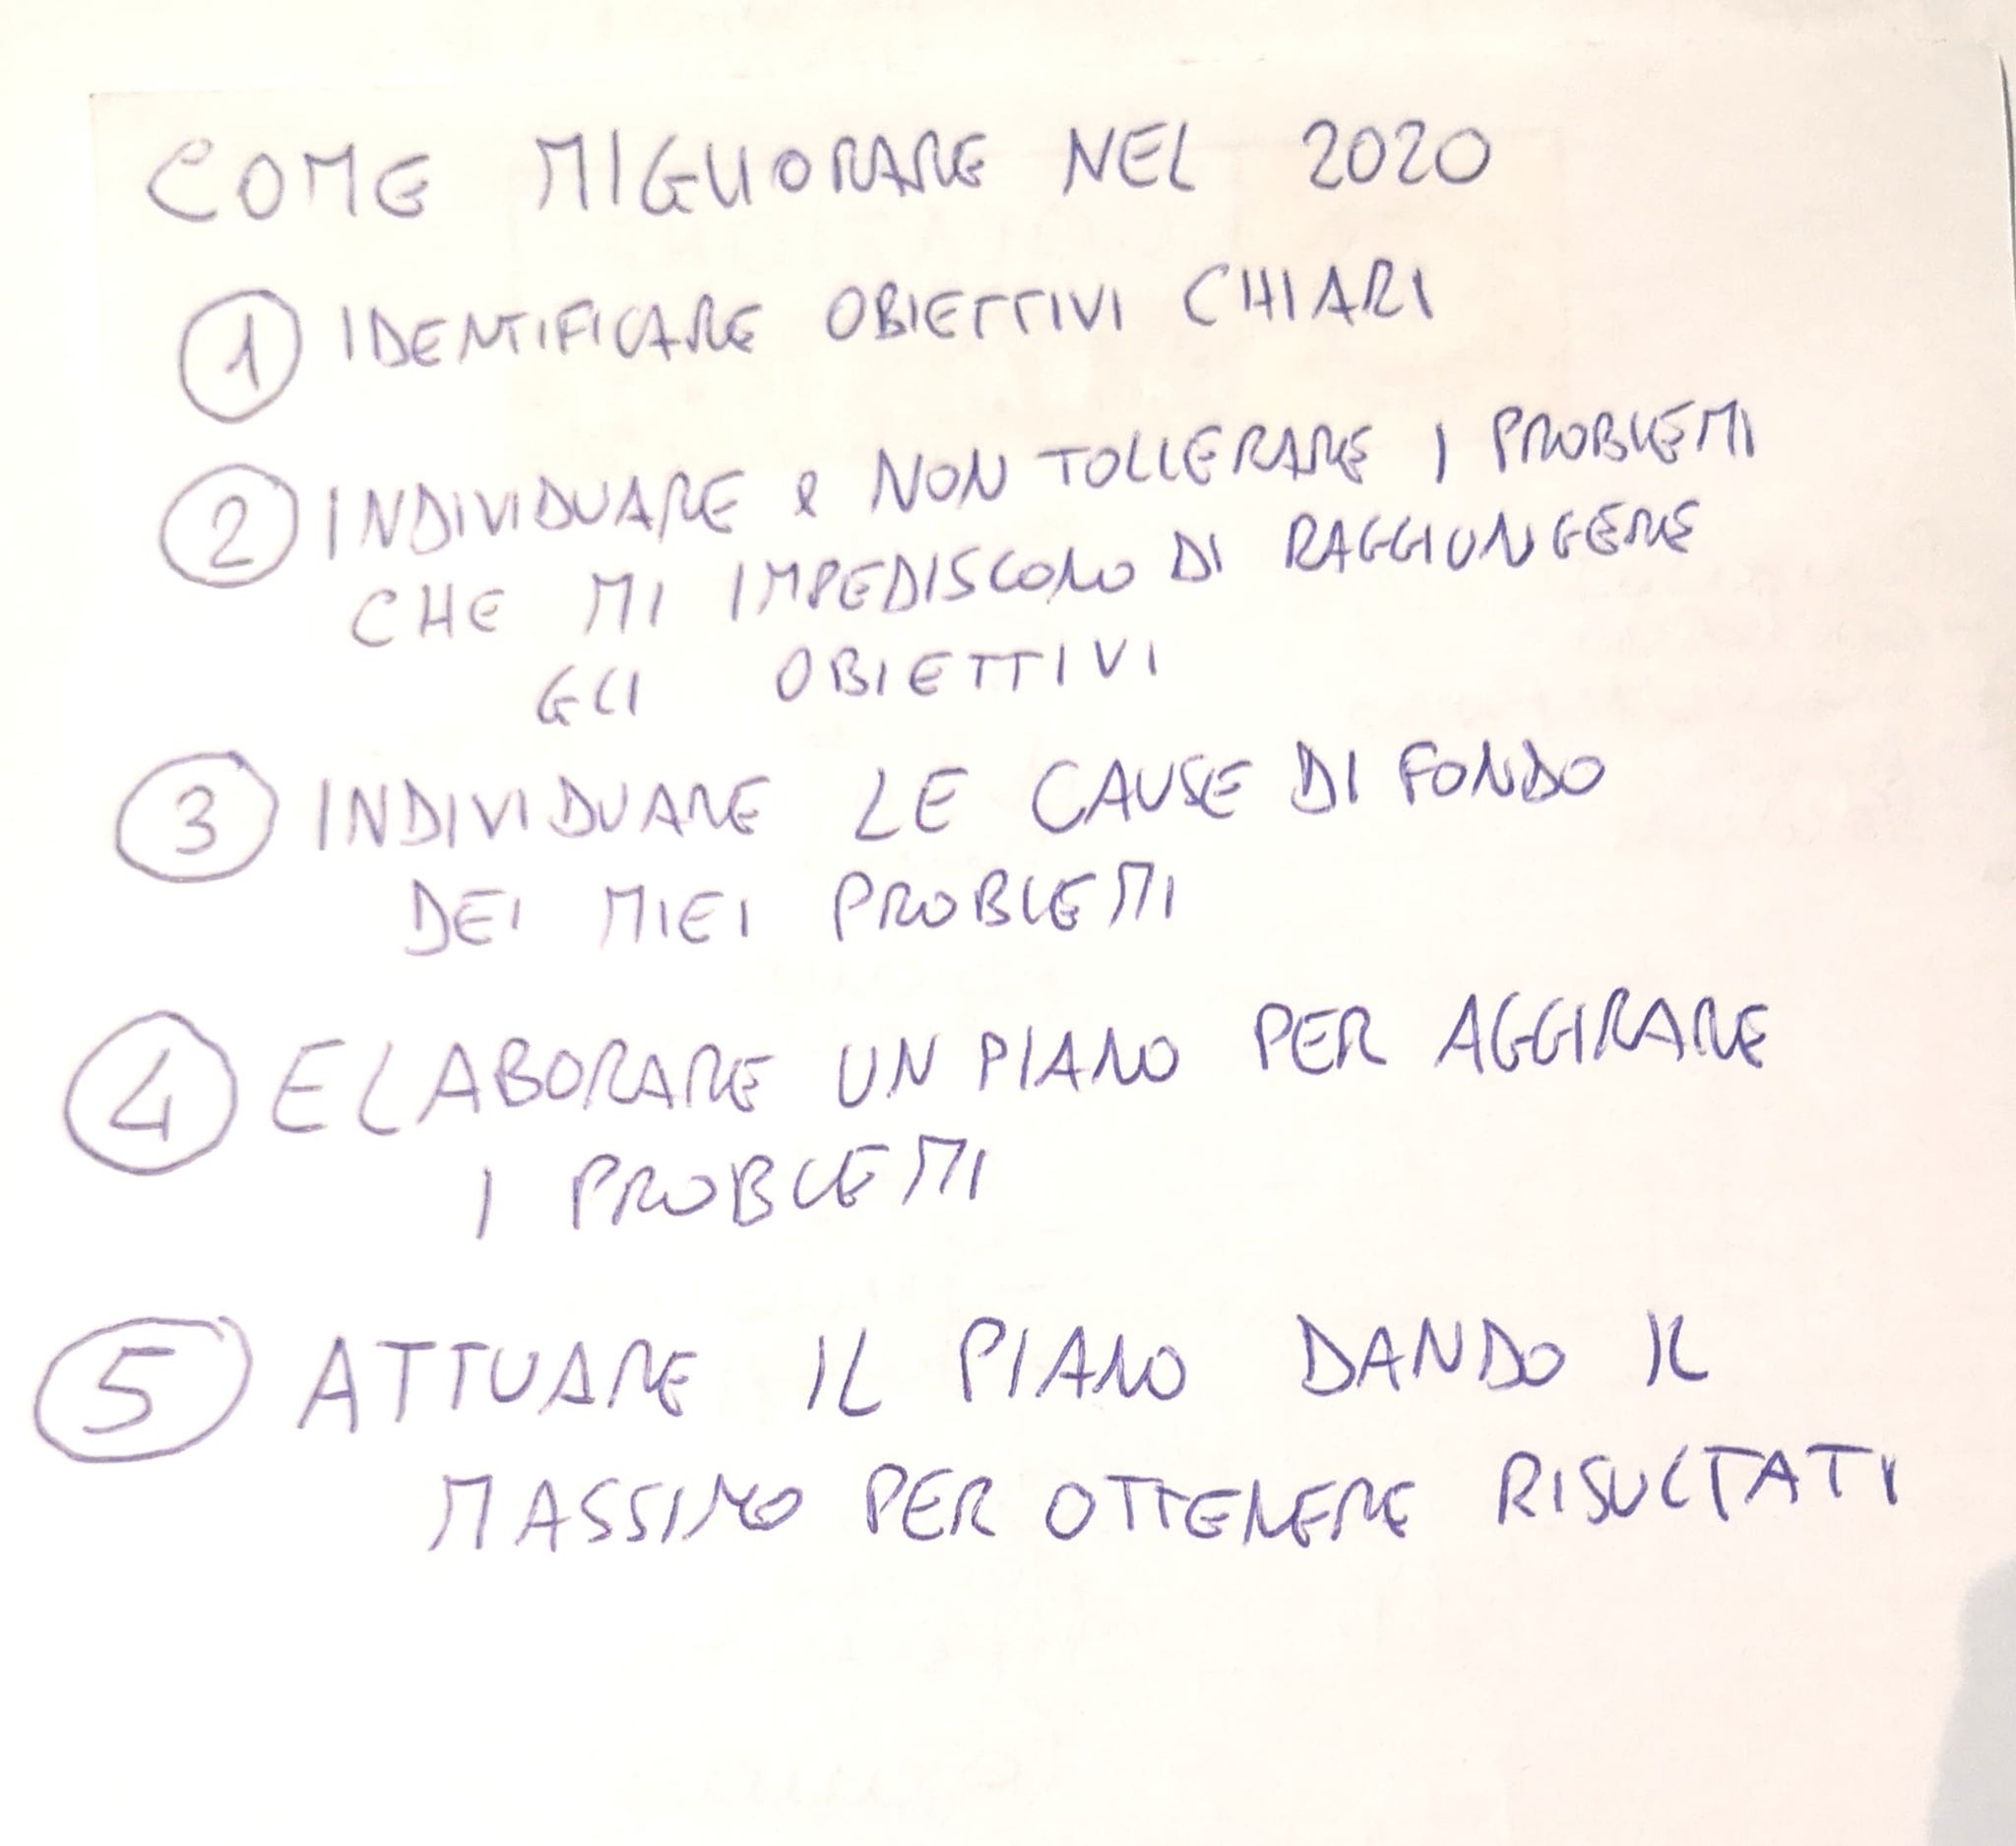 COME MIGLIORARE NEL 2020
1 IDENTIFICARE OBIETTIVI CHIARI
2 INDIVIDUARE e NON TOLLERARE I PROBLEMI
CHE MI IMPEDISCONO DI RAGGIUNGERE
GLI OBIETTIVI
3 INDIVIDUARE LE CAUSE DI FONDO
DEI MIEI PROBLEMI
4 ELABORARE UN PIANO PER AGGIRARE
I PROBLEMI
5 ATTUARE IL PIANO DANDO IL
MASSIMO PER OTTENERE RISULTATI